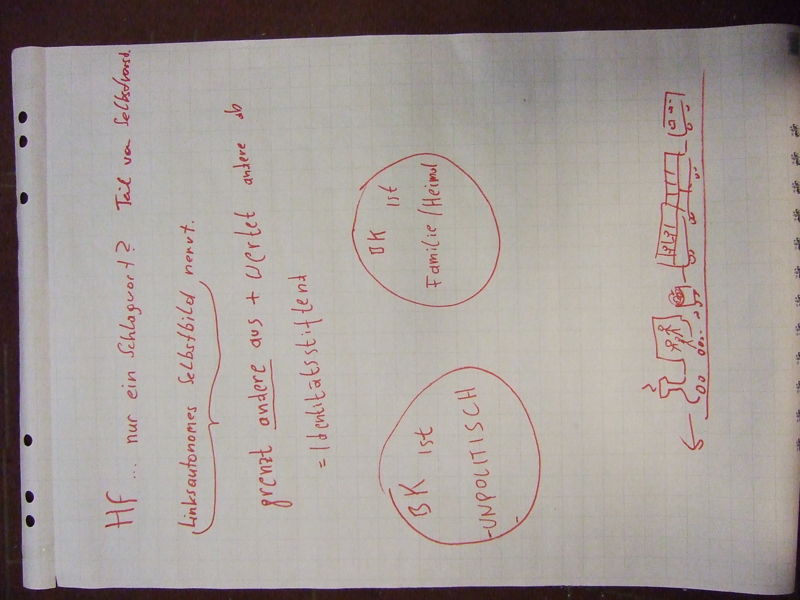 HF ... nur ein Schlagwort? Teil von Selbstverst.
Linksautonomes Selbstbild nervt.
grenzt andere aus + wertet andere ab
= Identitätsstiftend
BK ist
-UNPOLITISCH-
BK ist
Familie/Heimat